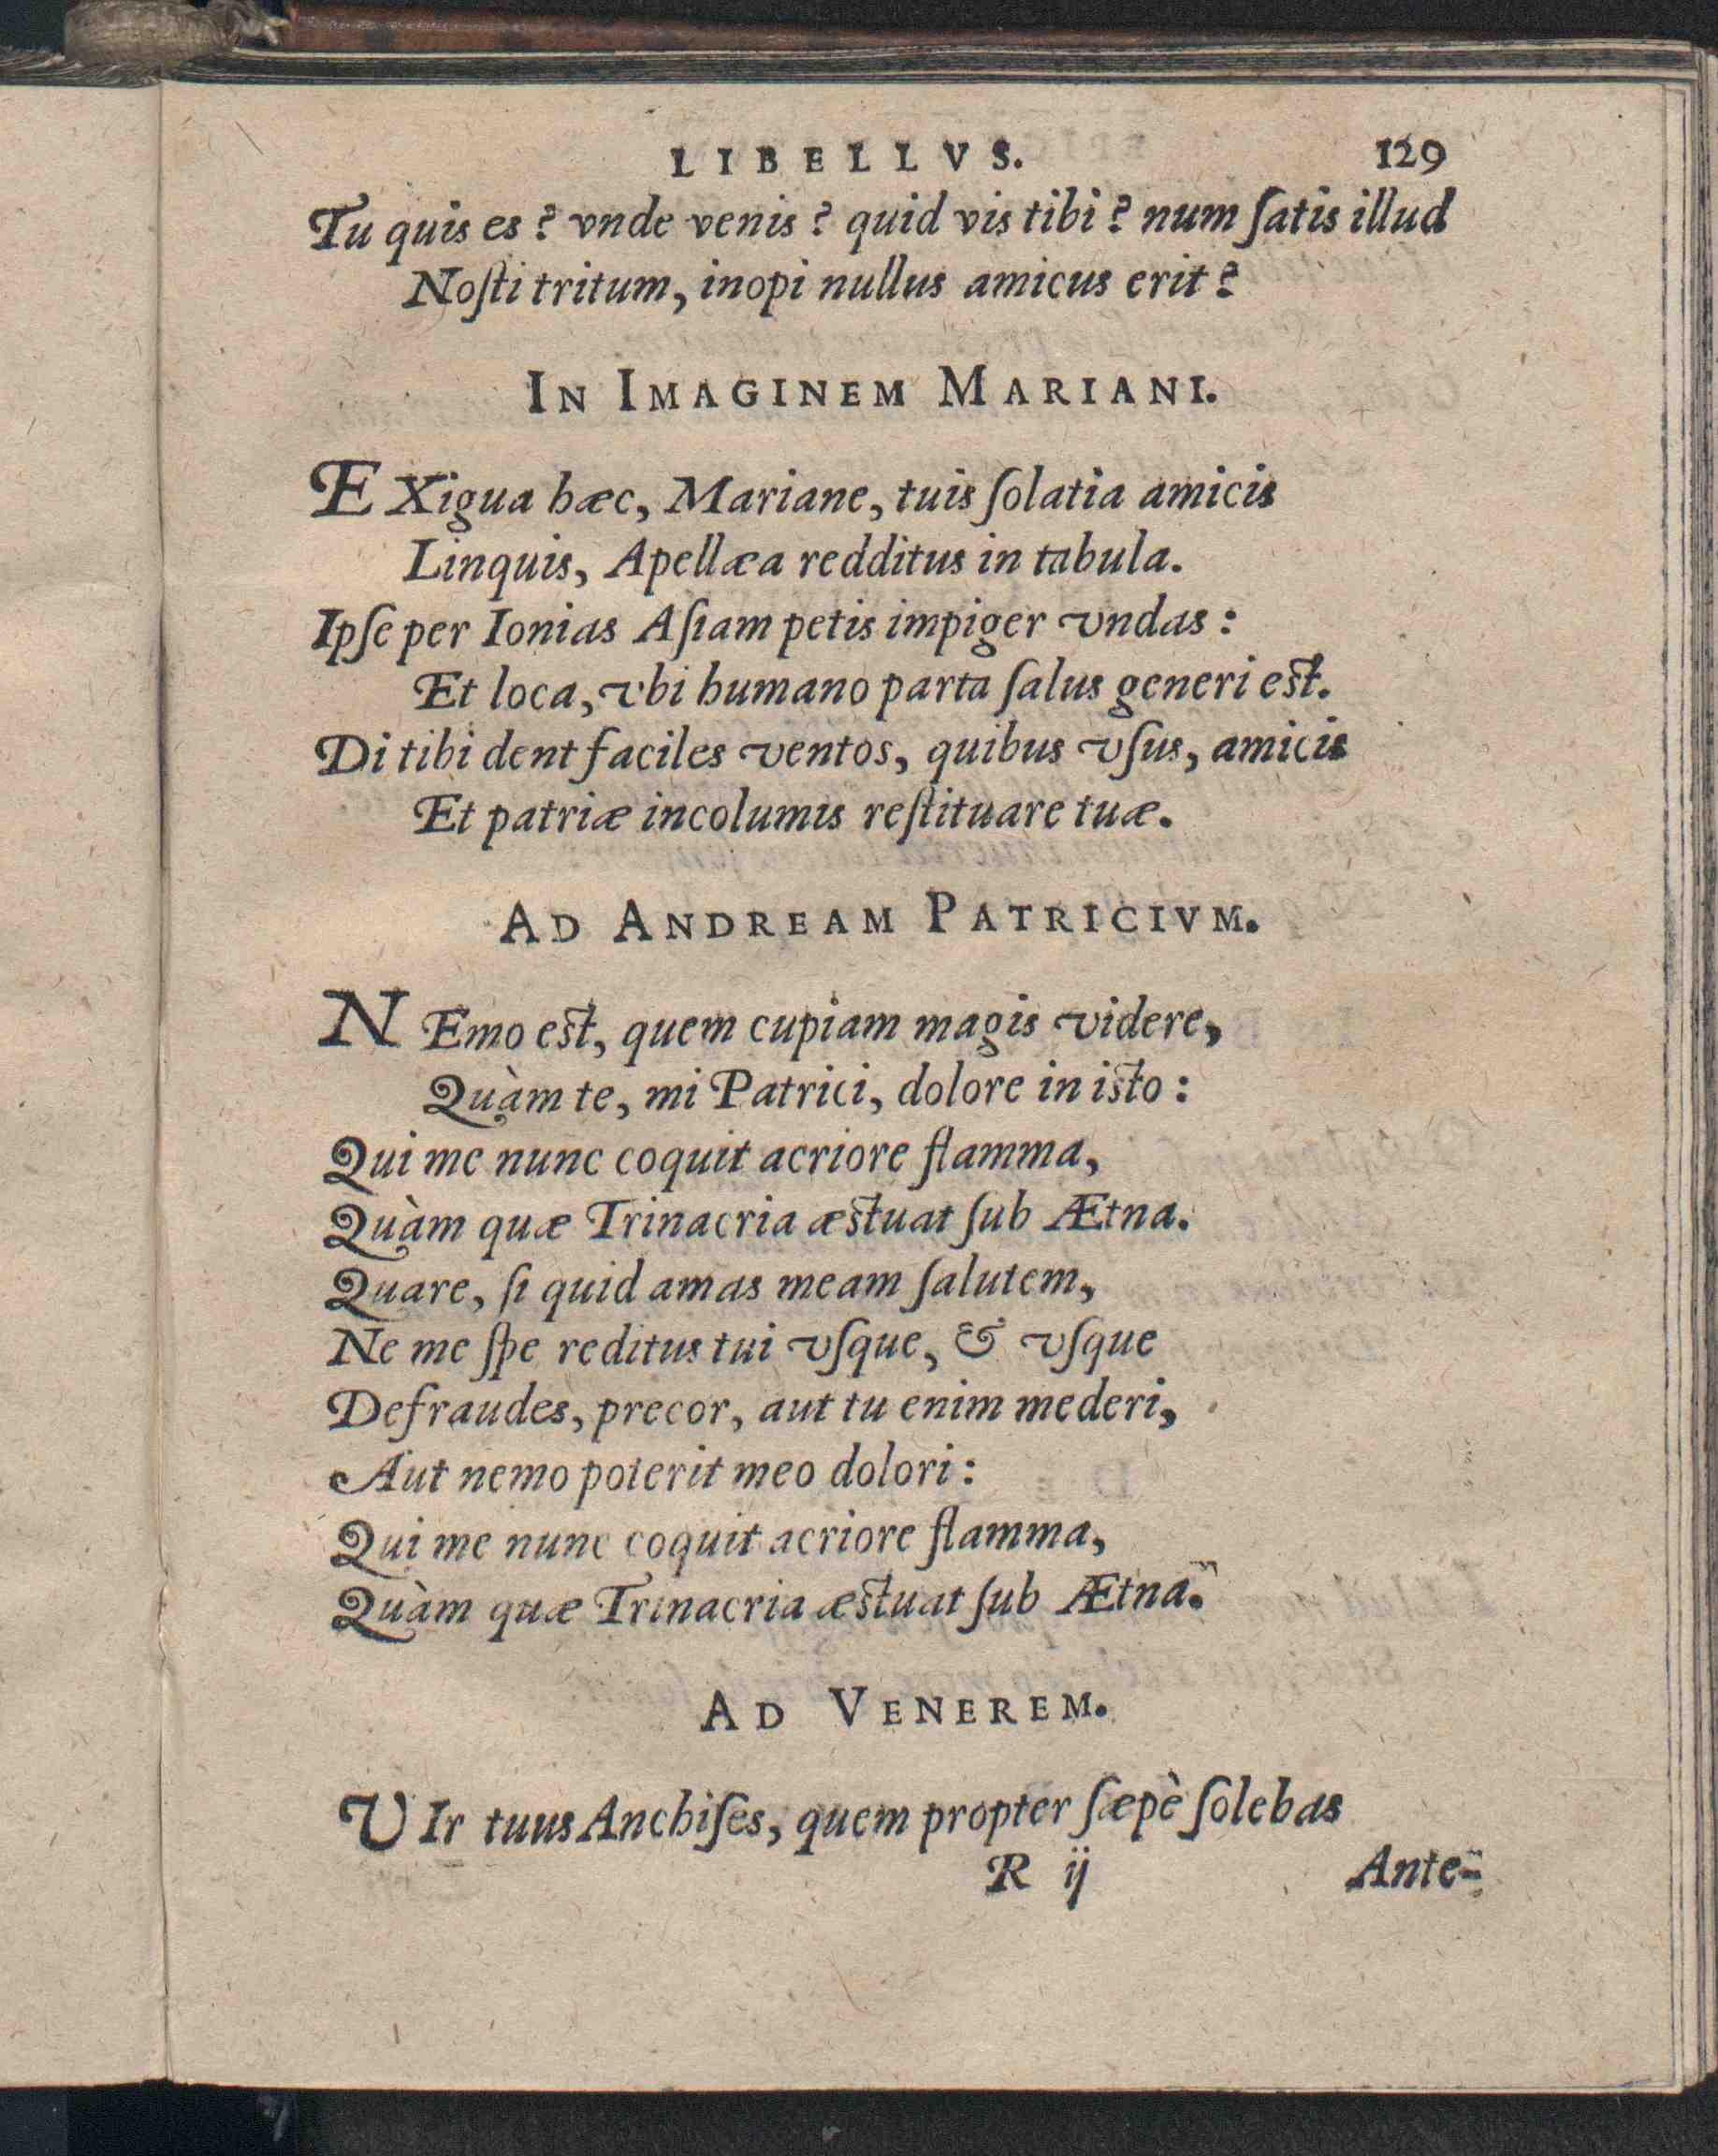 LIBELLVS. 129
Tu quis es? vnde venis? quid vis tibi? num ſatis illud
Noſti tritum, inopi nullus amicus erit?
IN IMAGINEM MARIANI.
EXigua hæc, Mariane, tuis ſolatia amicis
Linquis, Apellæa redditus in tabula.
Ipſe per Ionias Aſiam petis impiger vndas:
Et loca, vbi humano parta ſalus generi est.
Di tibi dent faciles ventos, quibus vſus, amicis
Et patriæ incolumis reſtituare tuæ.
AD ANDREAM PATRICIVM.
NEmo est, quem cupiam magis videre,
Quàm te, mi Patrici, dolore in isto:
Qui me nunc coquit acriore flamma,
Quàm quæ Trinacria æstuat ſub Ætna.
Quare, ſi quid amas meam ſalutem,
Ne me ſpe reditus tui vſque, & vſque
Defraudes, precor, aut tu enim mederi,
Aut nemo poterit meo dolori:
Qui me nunc coquit acriore flamma,
Quàm quæ Trinacria æstuat ſub Ætna.
AD VENEREM.
VIr tuus Anchiſes, quem propter ſæpè ſolebas
R ij Ante-